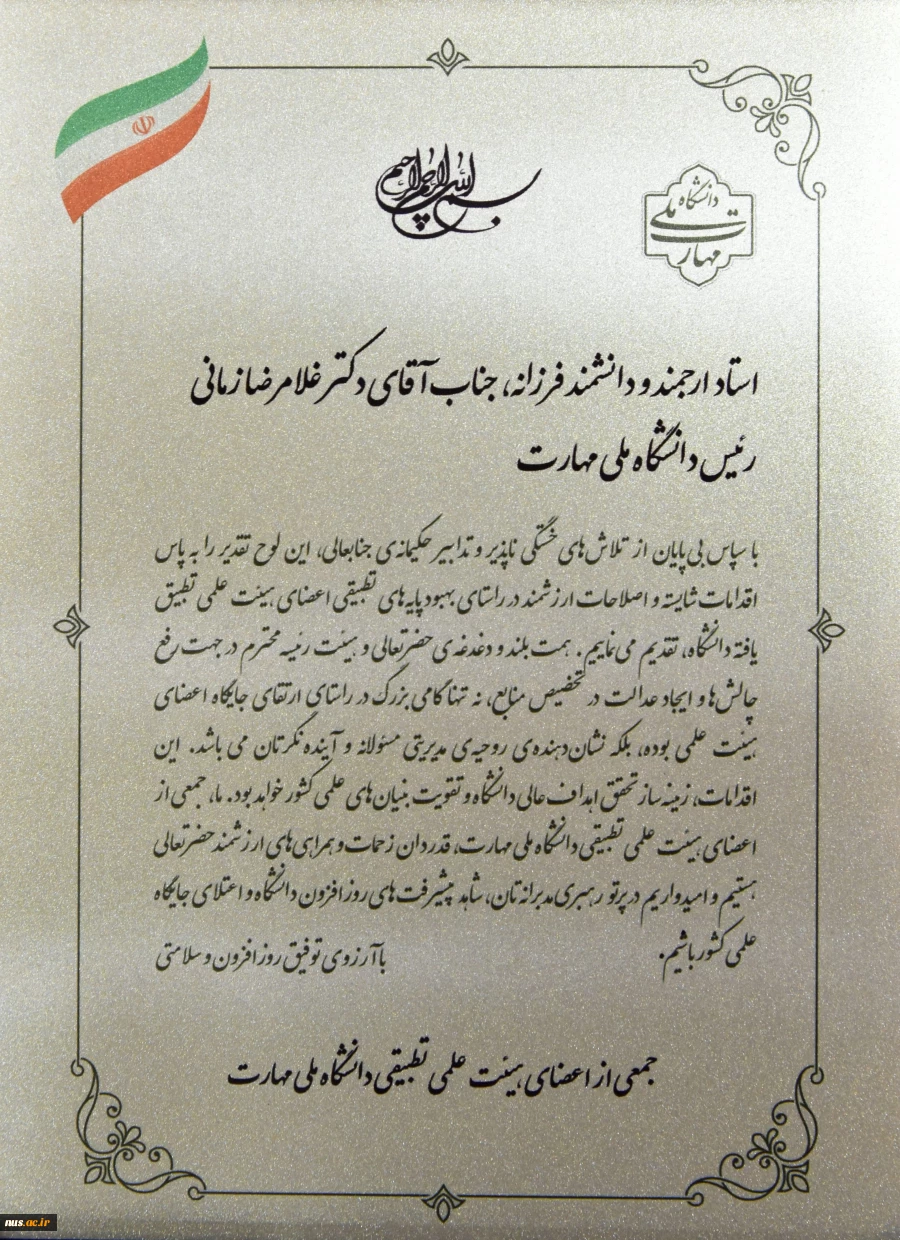 بسم الله الرحمن الرحیم
دانشگاه
ملی
مهارت
استاد ارجمند و دانشمند فرزانه، جناب آقای دکتر غلامرضا زمانی
رئیس دانشگاه ملی مهارت
با سپاس بی‌پایان از تلاش‌های خستگی ناپذیر و تدابیر حکیمانه‌ی جنابعالی، این لوح تقدیر را به پاس
اقدامات شایسته و اصلاحات ارزشمند در راستای بهبود پایه‌های تطبیقی اعضای هیئت علمی تطبیق
یافته دانشگاه، تقدیم می‌نماییم. همت بلند و دغدغه‌ی حضرتعالی و هیئت رئیسه محترم در جهت رفع
چالش‌ها و ایجاد عدالت در تخصیص منابع، نه تنها گامی بزرگ در راستای ارتقای جایگاه اعضای
هیئت علمی بوده، بلکه نشان‌دهنده‌ی روحیه‌ی مدیریتی مسئولانه و آینده نگرتان می باشد. این
اقدامات، زمینه‌ساز تحقق اهداف عالی دانشگاه و تقویت بنیان‌های علمی کشور خواهد بود. ما، جمعی از
اعضای هیئت علمی تطبیقی دانشگاه ملی مهارت، قدردان زحمات و همراهی‌های ارزشمند حضرتعالی
هستیم و امیدواریم در پرتو رهبری مدبرانه‌تان، شاهد پیشرفت‌های روزافزون دانشگاه و اعتلای جایگاه
علمی کشور باشیم. با آرزوی توفیق روزافزون و سلامتی
جمعی از اعضای هیئت علمی تطبیقی دانشگاه ملی مهارت
nus.ac.ir